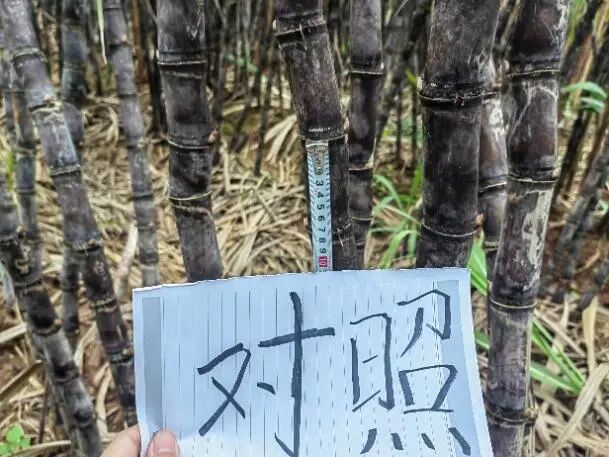 3 4 5 6 7 8 9 10
对照